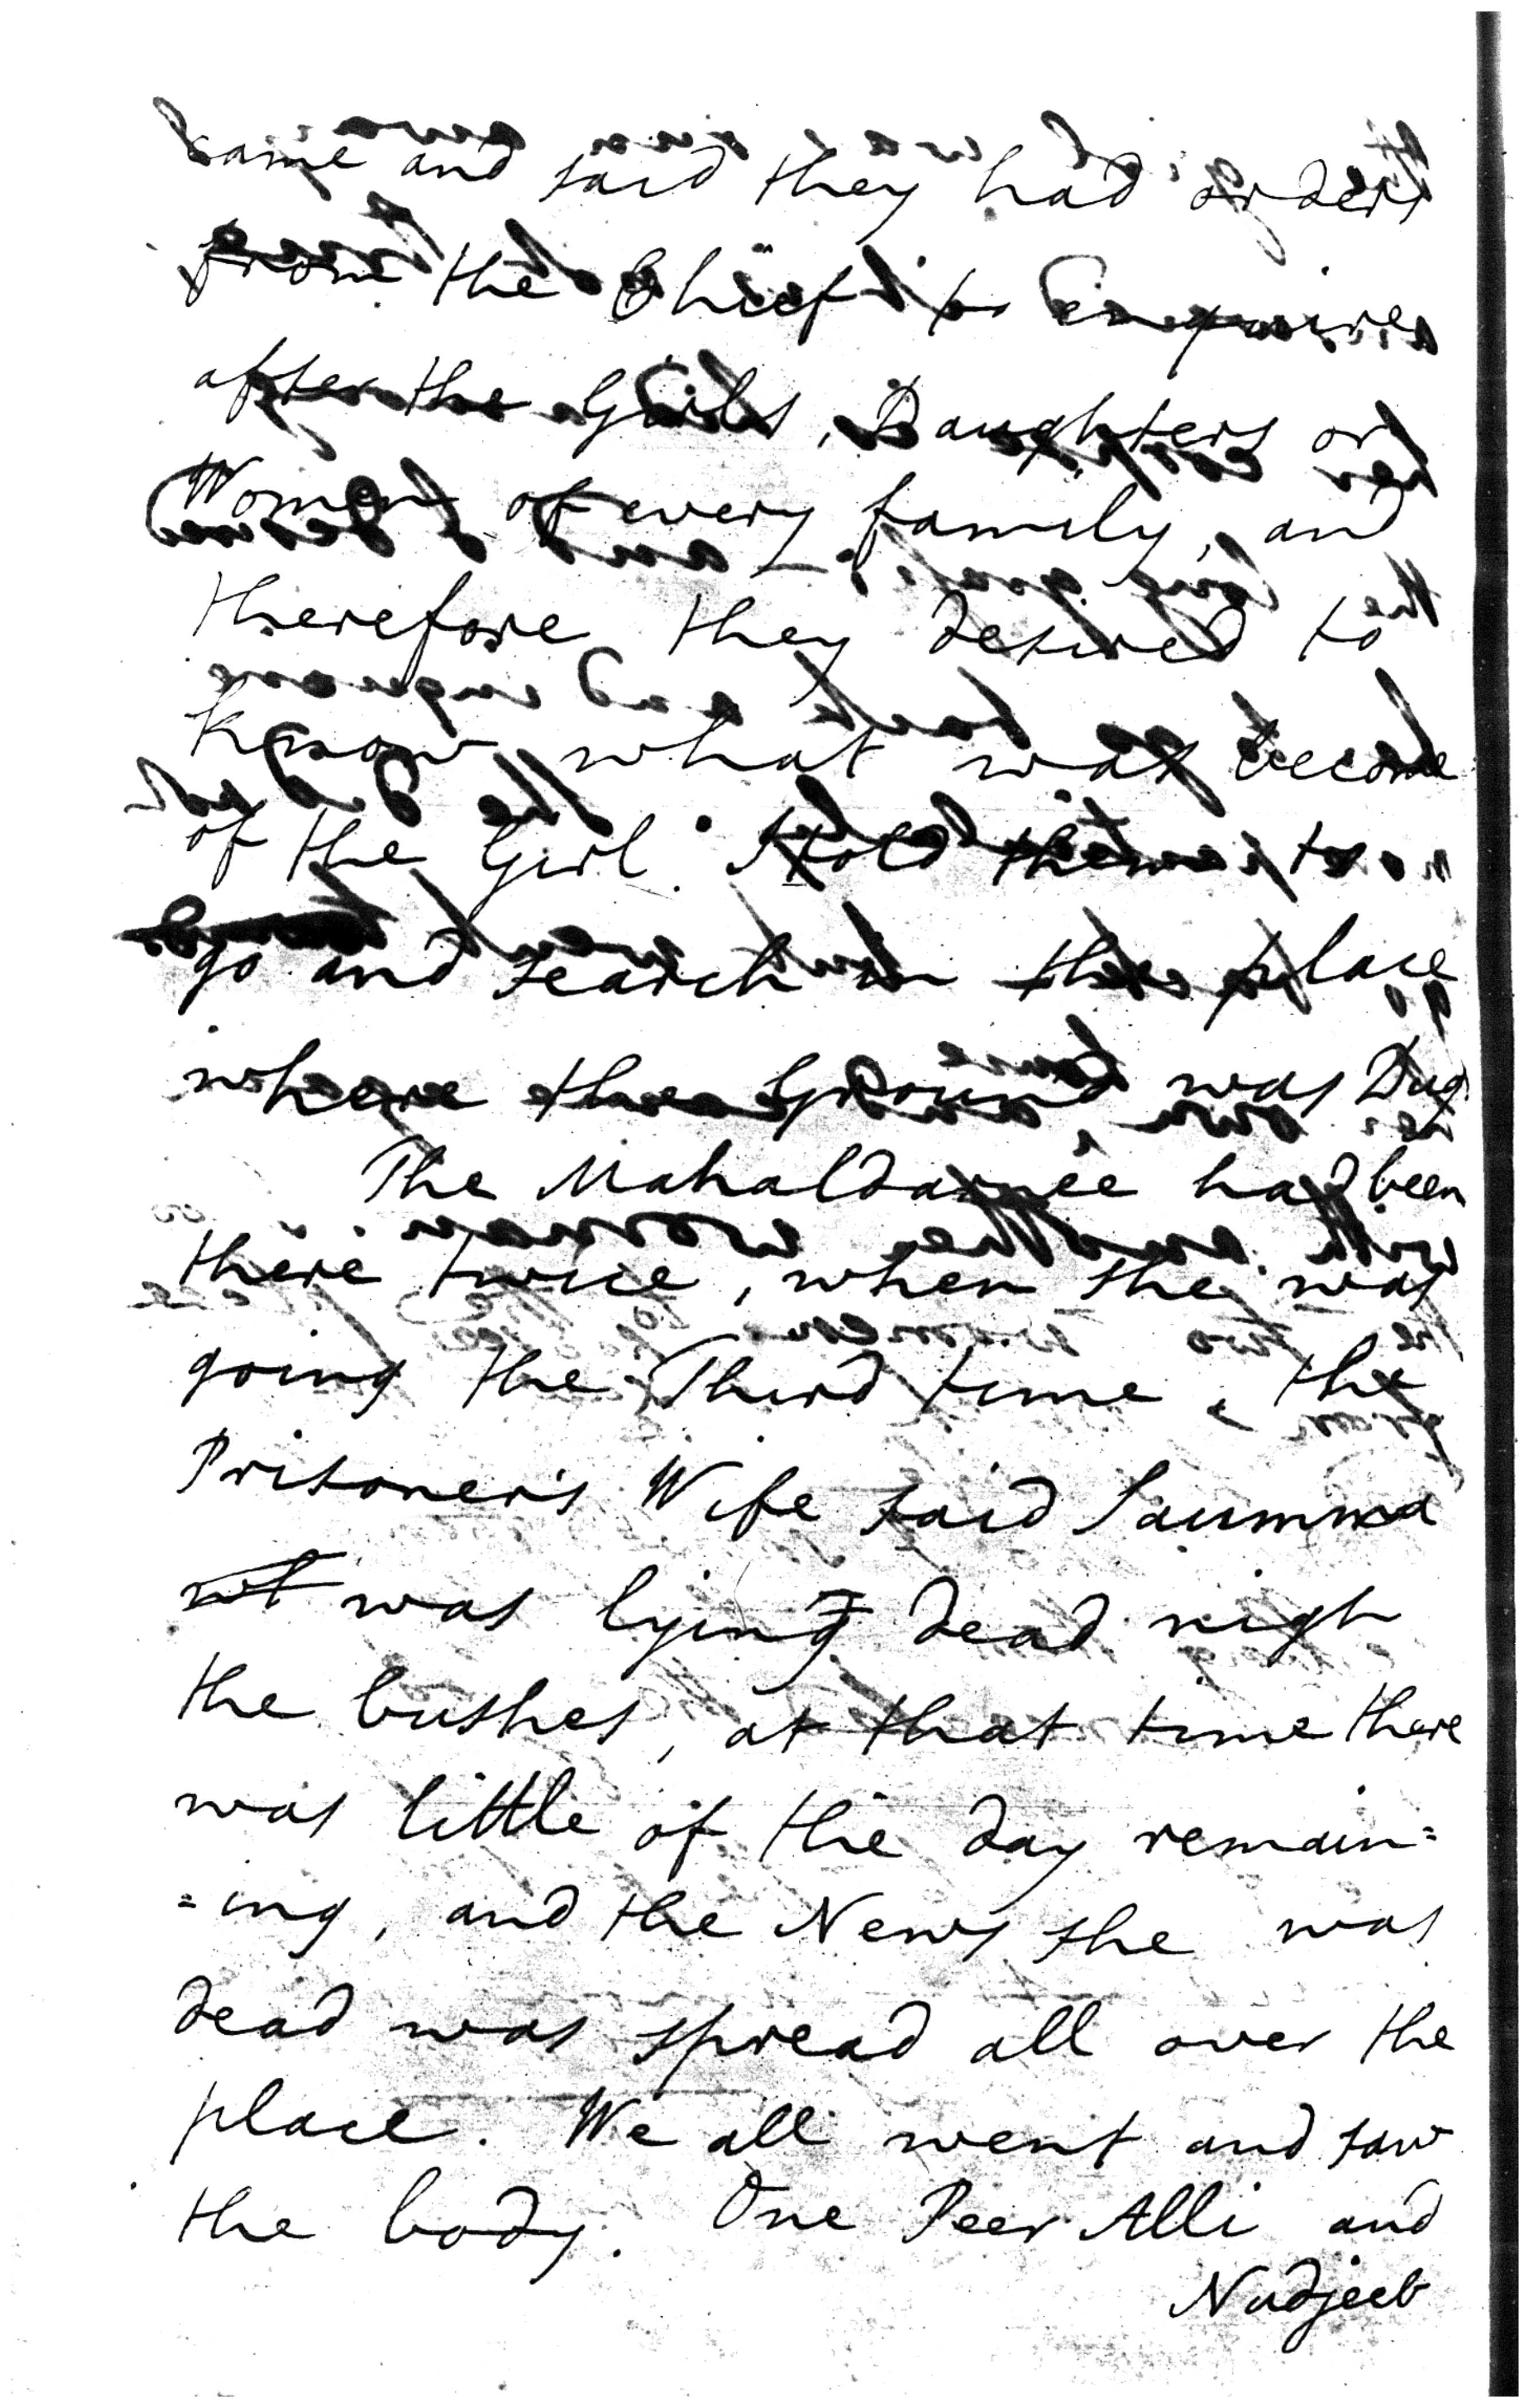 came and said they had orders
from the Chief to Enquire
after the Girls, Daughters or
Women of every family, and
therefore they desired to
know what was become
of the Girl. I told them to
go and search in the place
where the Ground was Dug.
The Mahaldarnee had been
there twice, when she was
going the Third time, the
Prisoner's Wife said Saumma
was lying dead nigh
the bushes, at that time there
was little of the day remain=
=ing, and the News she was
dead was spread all over the
place. We all went and saw
the body. One Peer Alli and
Nudjeeb